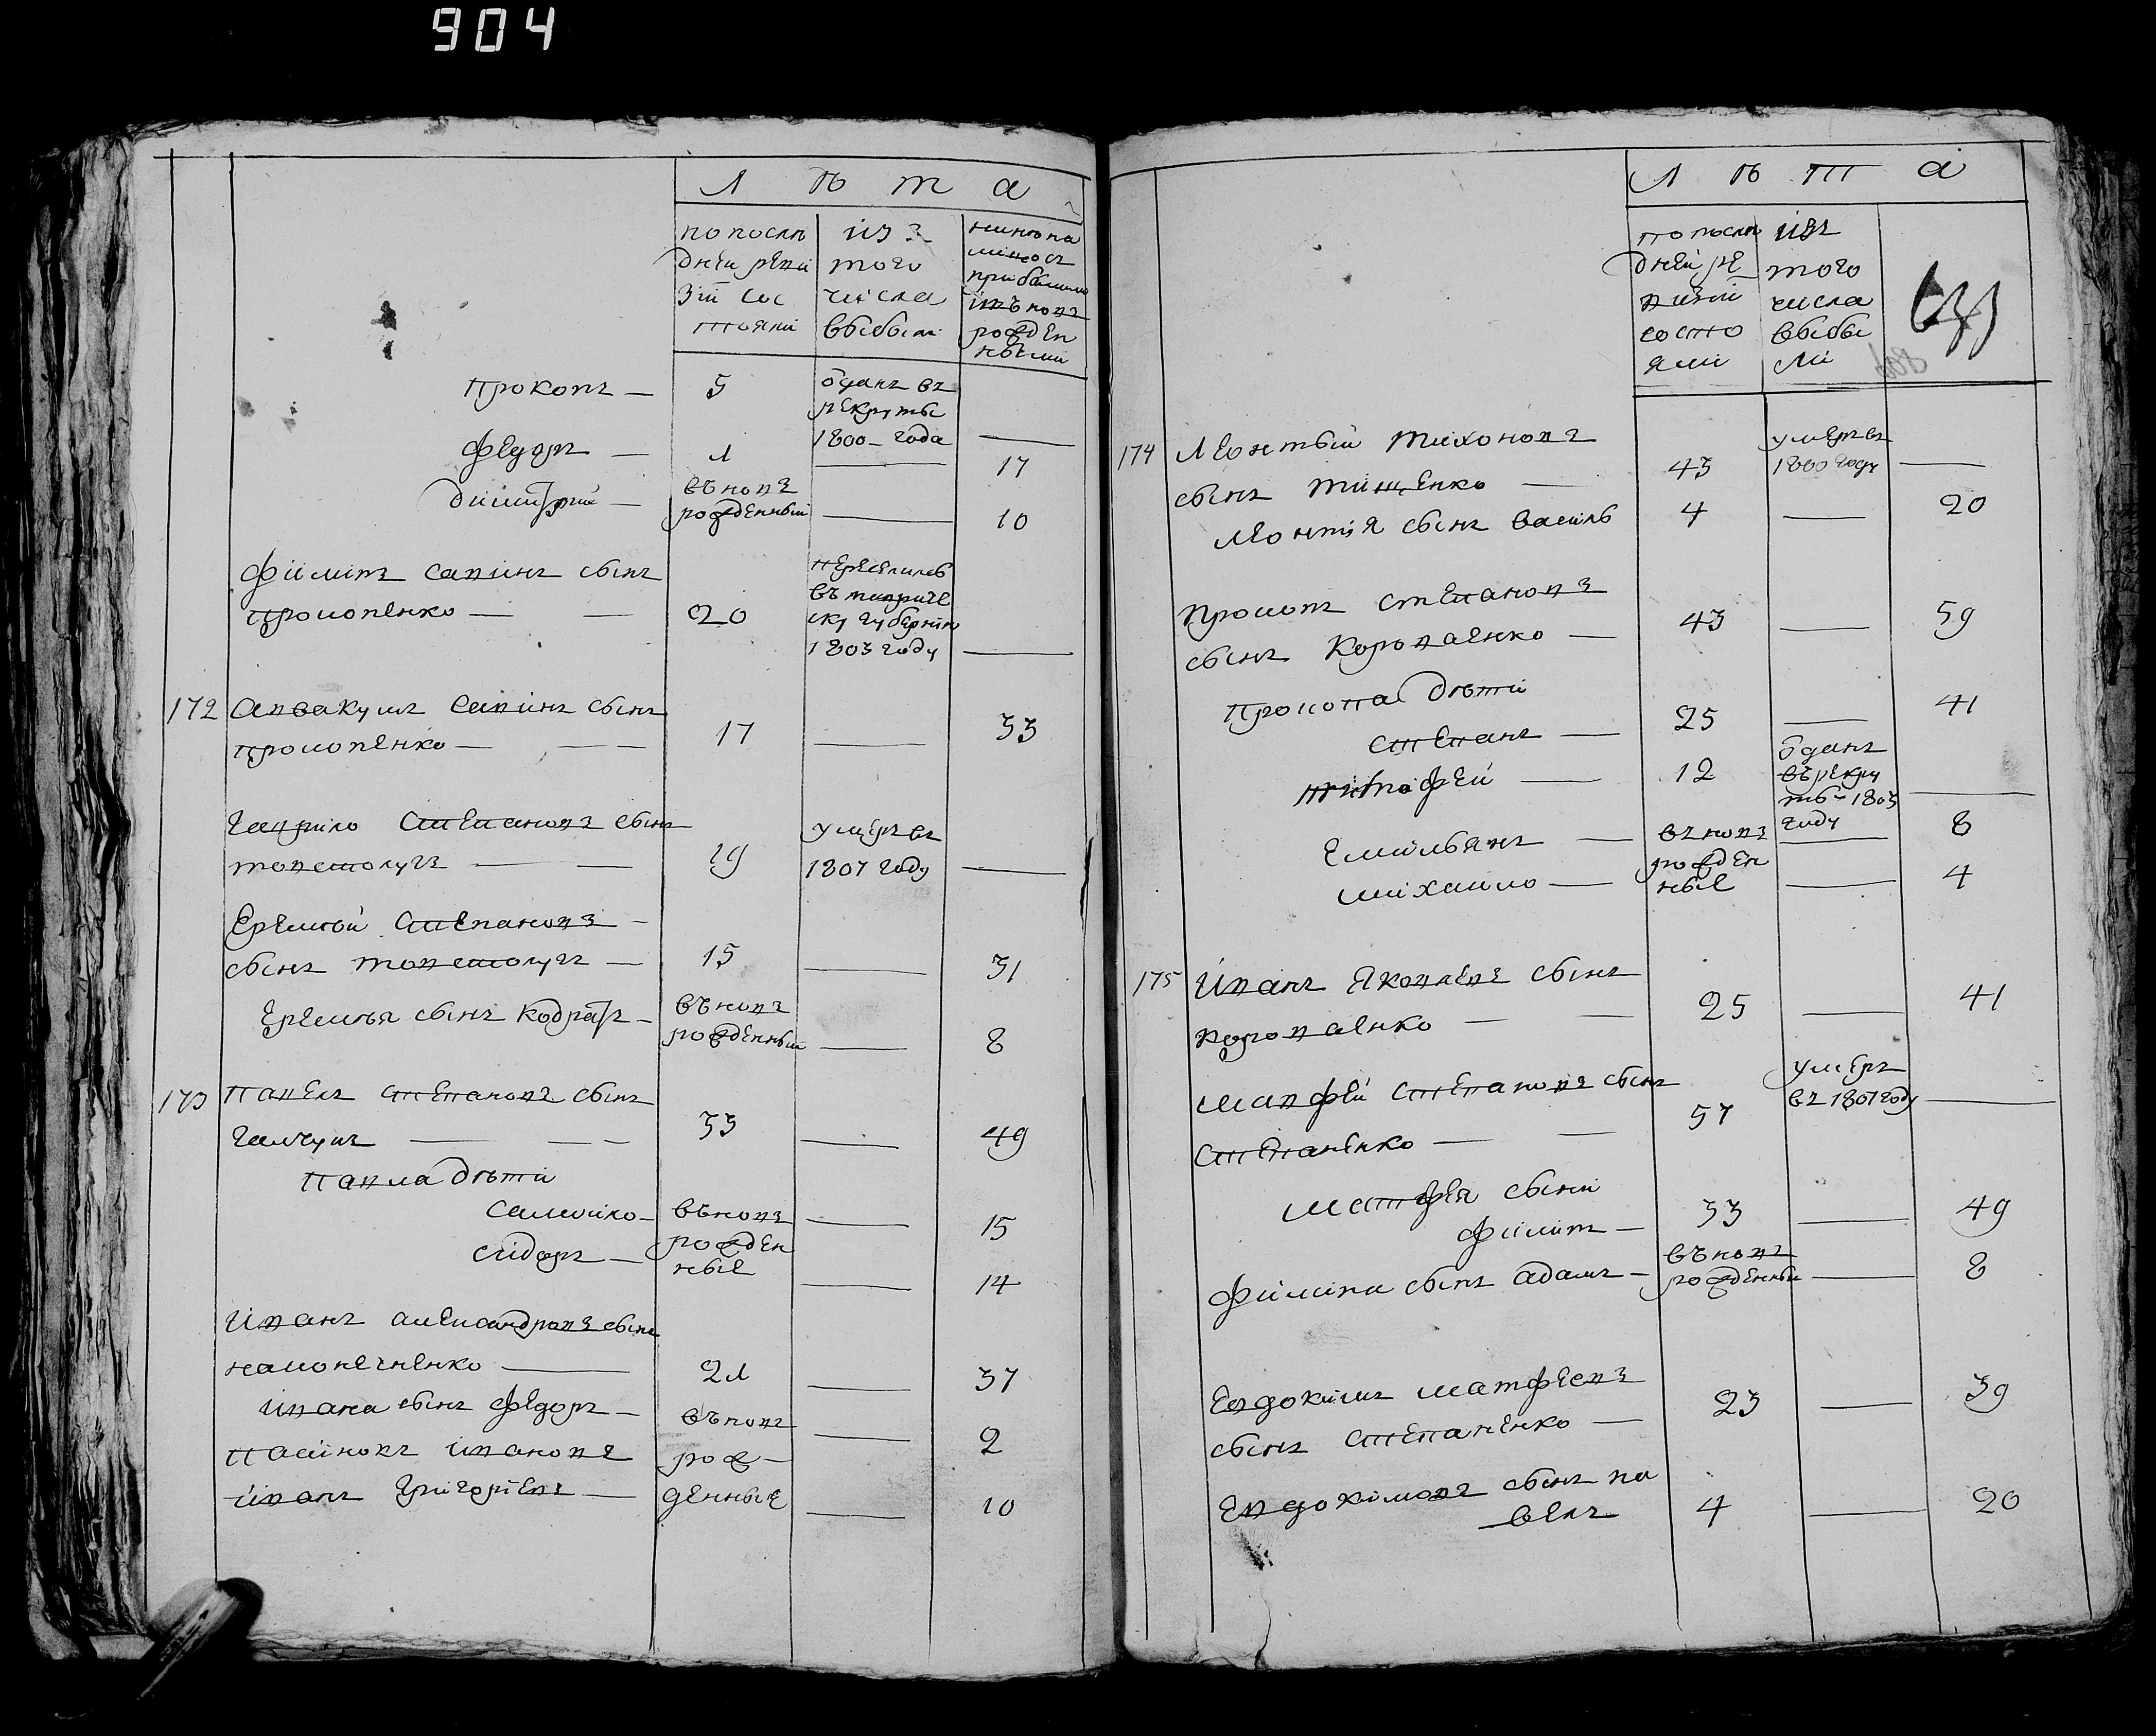 904
Лѣта
по послѣ
дней реви
зіи сос
тояли
изъ
того
числа
выбыли
ныне на
лицо съ
прибылыми
и въновъ
рожден
ными
Прокопъ — 5
ѿданъ въ
рекруты
1800 — года —
Федоръ — 1 — 17
Димитрий —
въновъ
рожденный — 10
Филипъ Савинъ сынъ
Прокопенко — — 20
переселилсь
въ тавриче
ску губернию
1803 году —
172 Аввакумъ Савинъ сынъ
Прокопенко — — — 17 — 33
Гаврило Степановъ сынъ
— — 19
умеръ въ
1807 году —
Еремѣй Степановъ —
сынъ — 15 — 31
Еремѣя сынъ Кодратъ —
въновъ
рожденный — 8
173 Павелъ Степановъ сынъ
— — — 33 — 49
Павла дѣти
Самойло — въновъ — 15
Сидоръ — рожден
ные — 14
Иванъ Александровъ сынъ
— 21 — 37
Ивана сынъ Федоръ — въновъ — 2
Пасынокъ Ивановъ рож —
Иванъ Григорьевъ — денные — 10
Лѣта
по послѣ
дней ре
визии
состо
яли
изъ
того
числа
выбы
ли
174 Леонтий Тихоновъ
сынъ Тищенко — 43
умеръ въ
1800 году —
Леонтия сынъ Василь 4 — 20
Прокопъ Степановъ
сынъ Коропаенко — 43 — 59
Прокопа дѣти
Степанъ — 25 — 41
— 12
ѿданъ
въ рекру
ты 1803
году —
Емильянъ — въновъ — 8
Михайло —
рожден
ные — 4
175 Иванъ Яковлевъ сынъ
Коропаенко — — 25 — 41
Матфей Степановъ сынъ
Степаненко — — 57
умеръ
въ 1807 году —
Матфея сыни
Филипъ — 33 — 49
Филипа сынъ Адамъ —
въновъ
рожденны — 8
Евдокимъ Матфеевъ
сынъ Степаненко — 23 — 39
Евдокимовъ сынъ Па
велъ 4 — 20